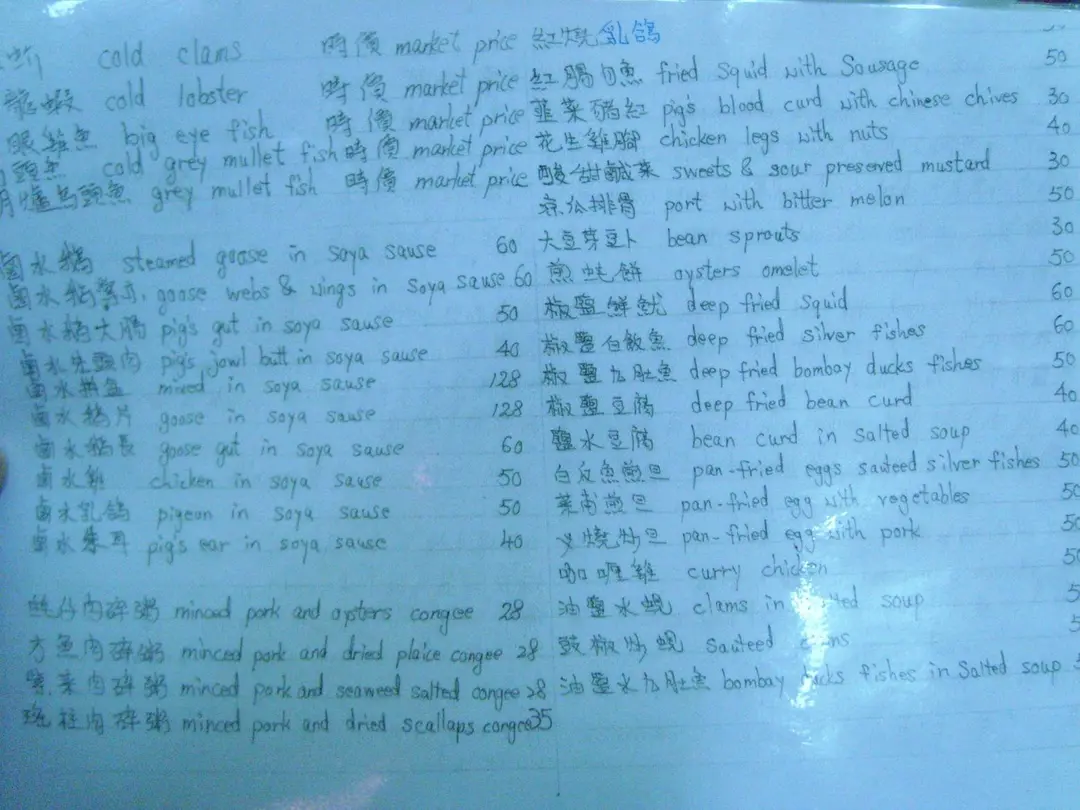 cold clams 時價 market price
龍蝦 cold lobster 時價 market price
眼鮮魚 big eye fish 時價 market price
頭魚 cold grey mullet fish 時價 market price
爐烏頭魚 grey mullet fish 時價 market price
鹵水鵝 steamed goose in soya sause 60
鹵水鵝掌亦. goose webs & wings in soya sause 60
鹵水鵝大腸 pig's gut in soya sause 50
鹵水 頭肉 pig's jowl butt in soya sause 40
鹵水拼盆 mixed in soya sause 128
鹵水鵝片 goose in soya sause 128
鹵水鵝長 goose gut in soya sause 60
鹵水雞 chicken in soya sause 50
鹵水乳鴿 pigeon in soya sause 50
鹵水朱耳 pig's ear in soya sause 40
肉碎粥 minced pork and oysters congee 28
方魚肉碎粥 minced pork and dried plaice congee 28
紫菜肉碎粥 minced pork and seaweed salted congee 28
瑤柱肉碎粥 minced pork and dried scallaps congee 35
紅燒乳鴿
紅腸 魚 fried squid with Sousage 50
韮菜豬紅 pig's blood curd with chinese chives 30
花生雞腳 chicken legs with nuts 40
酸甜鹹菜 sweets & sour preserved mustard 30
涼瓜排骨 port with bitter melon 50
大豆芽豆卜 bean sprouts 30
煎蚝餅 oysters omelet 50
椒鹽鮮魷 deep fried squid 60
椒鹽白飯魚 deep fried silver fishes 60
椒鹽九肚魚 deep fried bombay ducks fishes 50
椒鹽豆腐 deep fried bean curd 40
鹽水豆腐 bean curd in salted soup 40
白反魚煎旦 pan-fried eggs sauteed silver fishes 50
菜甫煎旦 pan-fried egg with vegetables 50
叉燒炒旦 pan-fried egg with pork 50
咖喱雞 curry chicken 50
油鹽水蜆 clams in soup
鼓椒炒蜆 Sauteed
油鹽水九肚魚 bombay ducks fishes in Salted soup